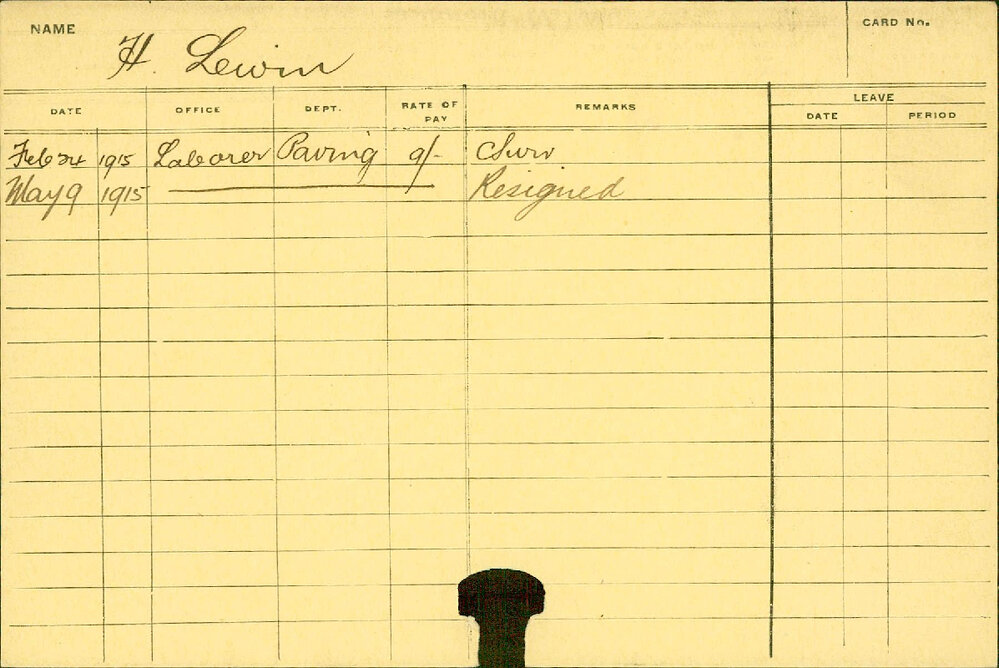 NAME
H. Lewin
CARD No.
DATE OFFICE DEPT. RATE OF PAY REMARKS LEAVE
DATE PERIOD
Feb 24 1915 Laborer Paving 9/-
May 9 1915 Resigned